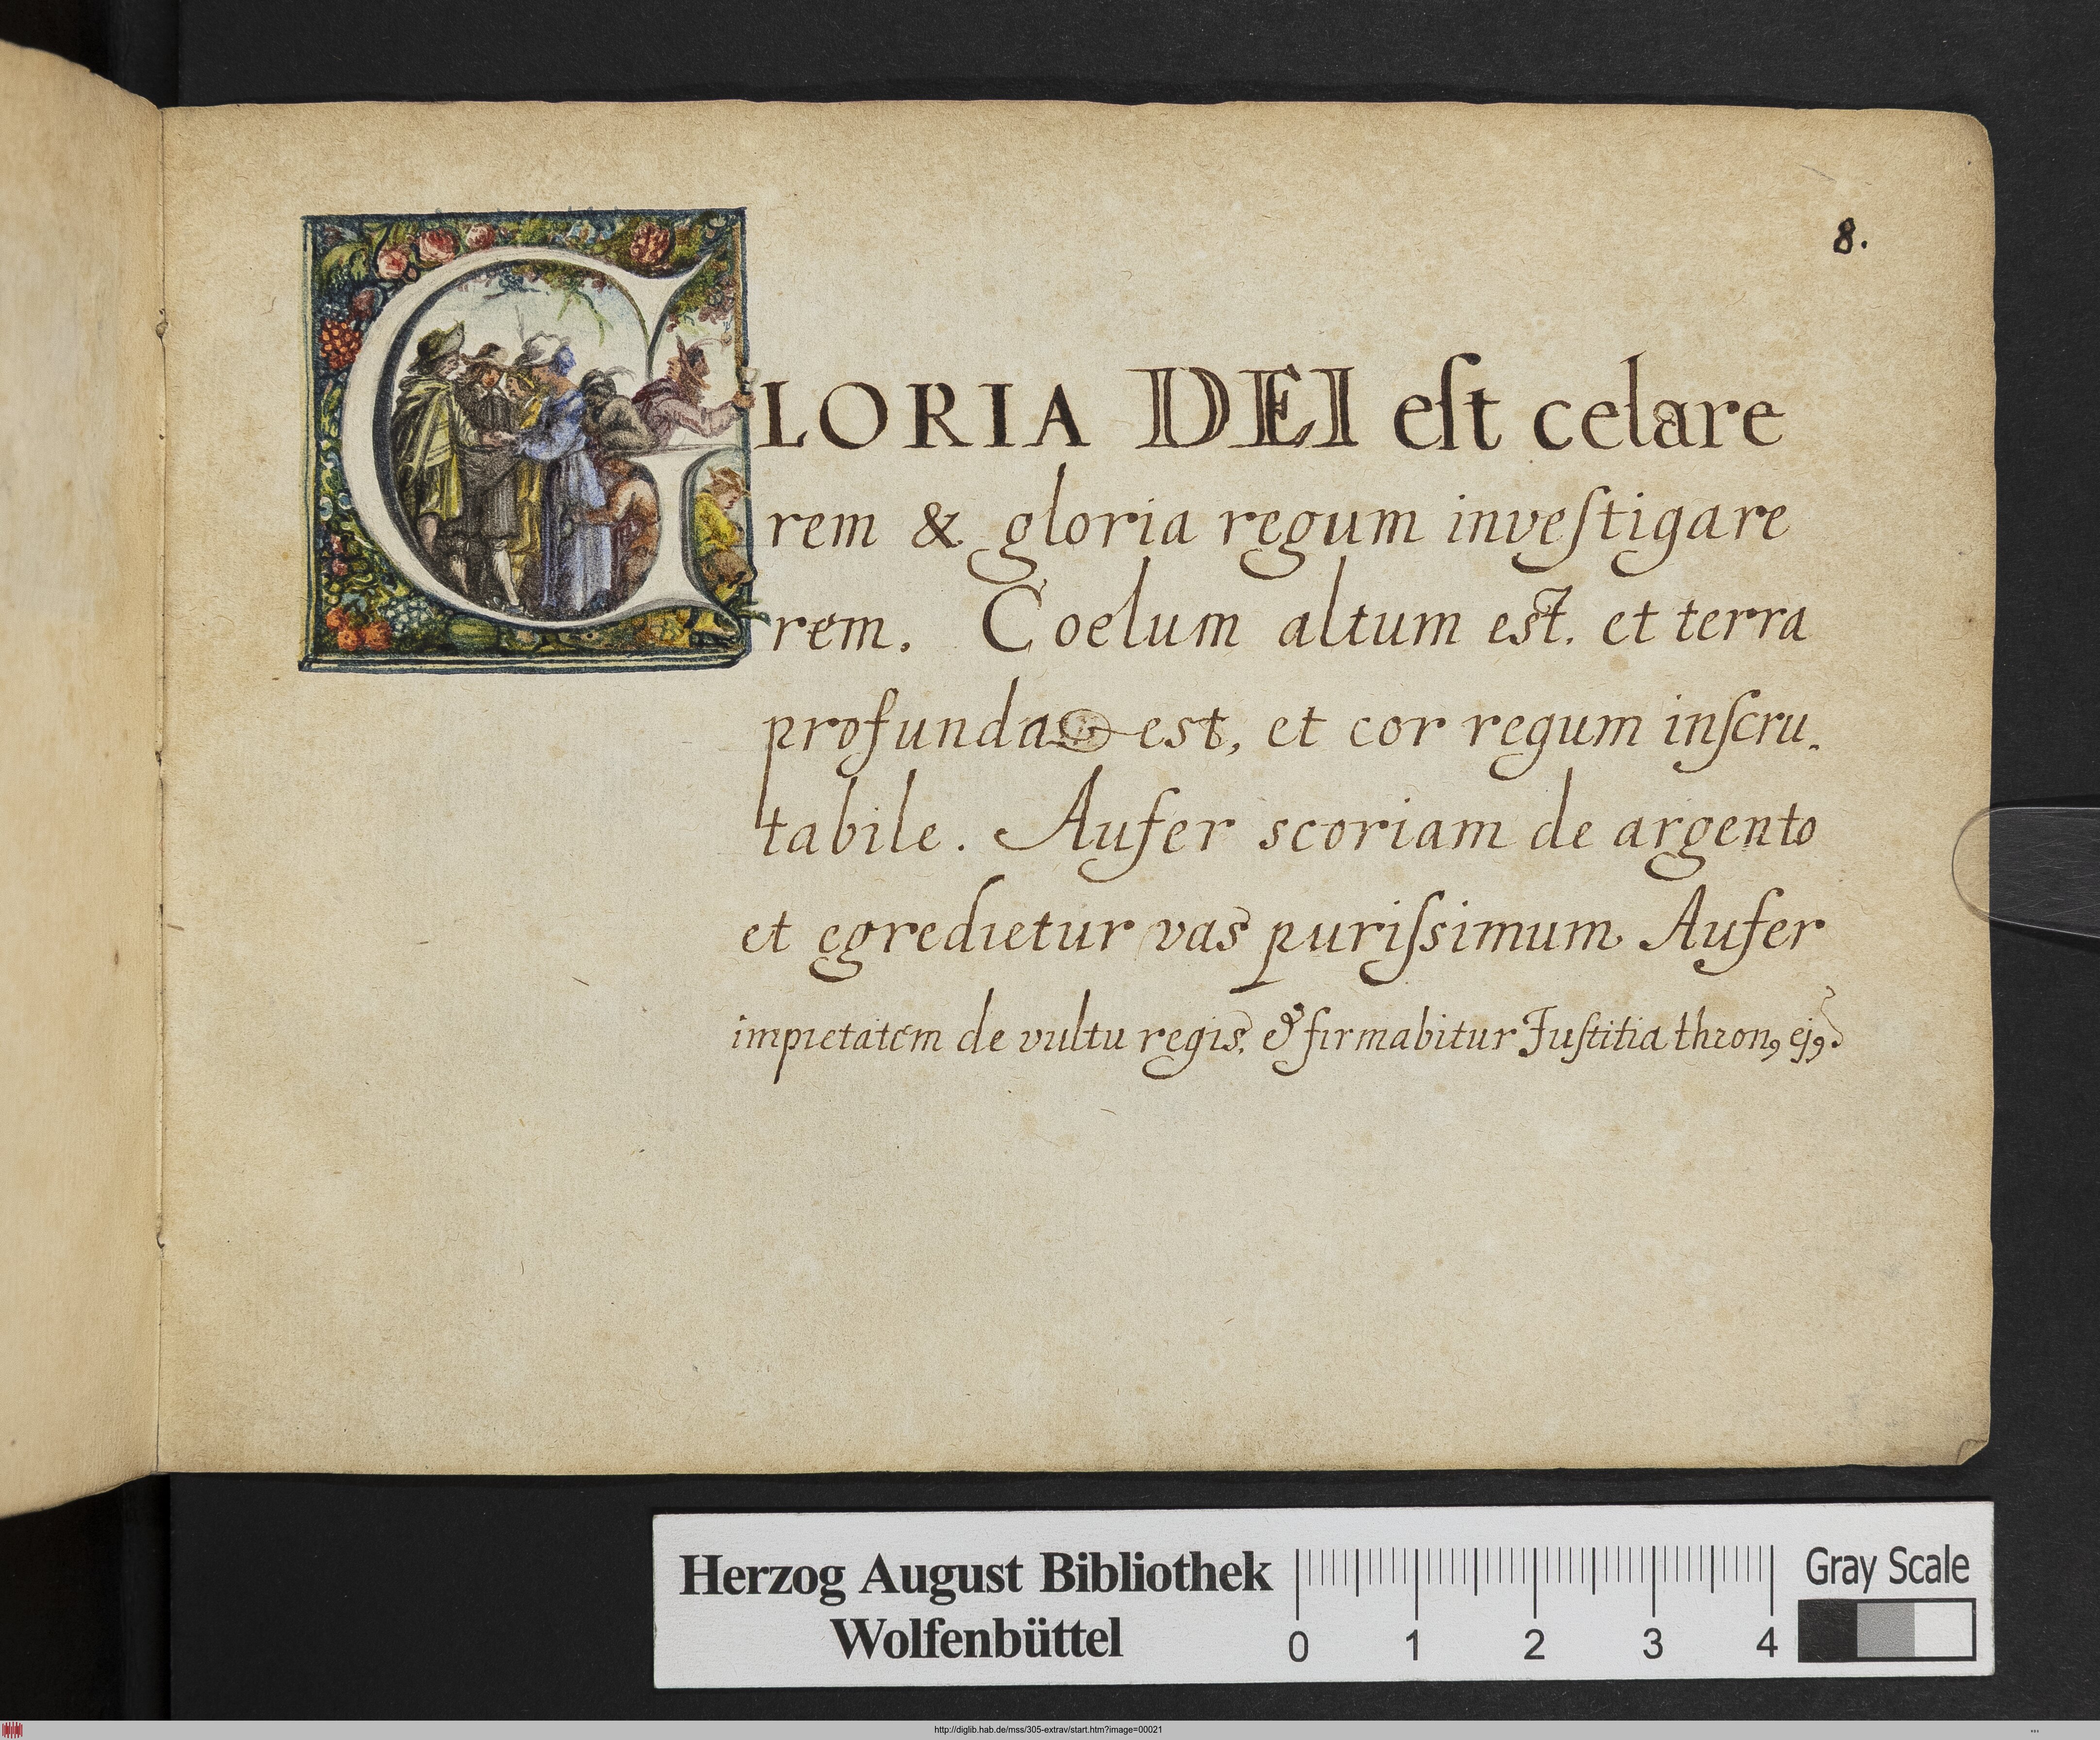 8.
GLORIA DEI eſt celare
rem & gloria regum inveſtigare
rem. Coelum altum est. et terra
profunda est, et cor regum inſcru.
tabile. Aufer scoriam de argento
et egredietur vas puriſsimum Aufer
impietatem de vultu regis. & firmabitur Juſtitia thronꝰ ejꝰ
Herzog August Bibliothek
Wolfenbüttel
0 1 2 3 4
Gray Scale
http://diglib.hab.de/mss/305-extrav/start.htm?image=00021